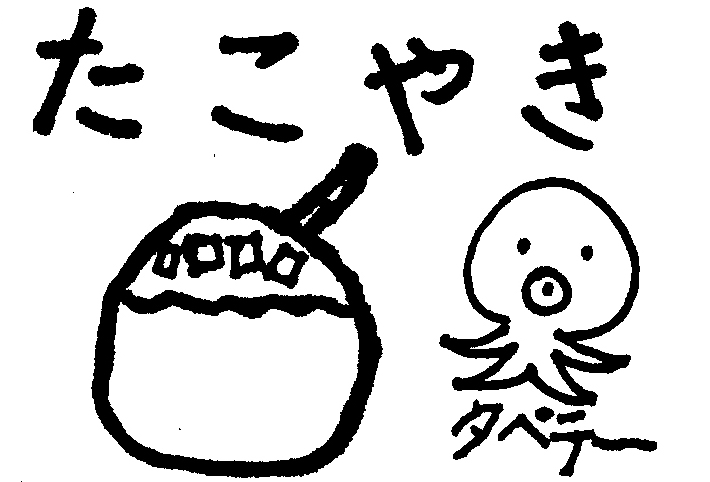 たこやき
タベテー